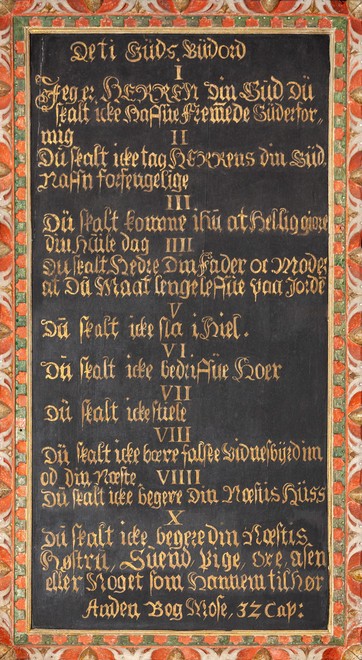 De ti Güds Büdord
I
Jeg er HERREN din Gud Dü
skalt icke haffüe Fremede Güder for
mig
II
Dü skalt icke tag HERRens din Güd
Naffn forfengelige
III
Dü skalt komme ihü at Hellig giøre
din Huile dag IIII
Dü skalt Hedre Din Fader oc Moder
at Dü Maat lenge leffüe paa Jorde
V
Dü skalt icke sla i Hiel.
VI
Dü skalt icke bedriffüe Hoer
VII
Dü skalt icke stiele
VIII
Dü skalt icke bære falske Vidnesbyrd im
od din Næste VIIII
Dü skalt icke begere Din Næstis Hüss
X
Dü skalt icke begere din Næstis
Høstrü, Suend Pige, oxe, asen
eller Noget som Hannem til hør
Anden Bog Mose, 32 Cap: